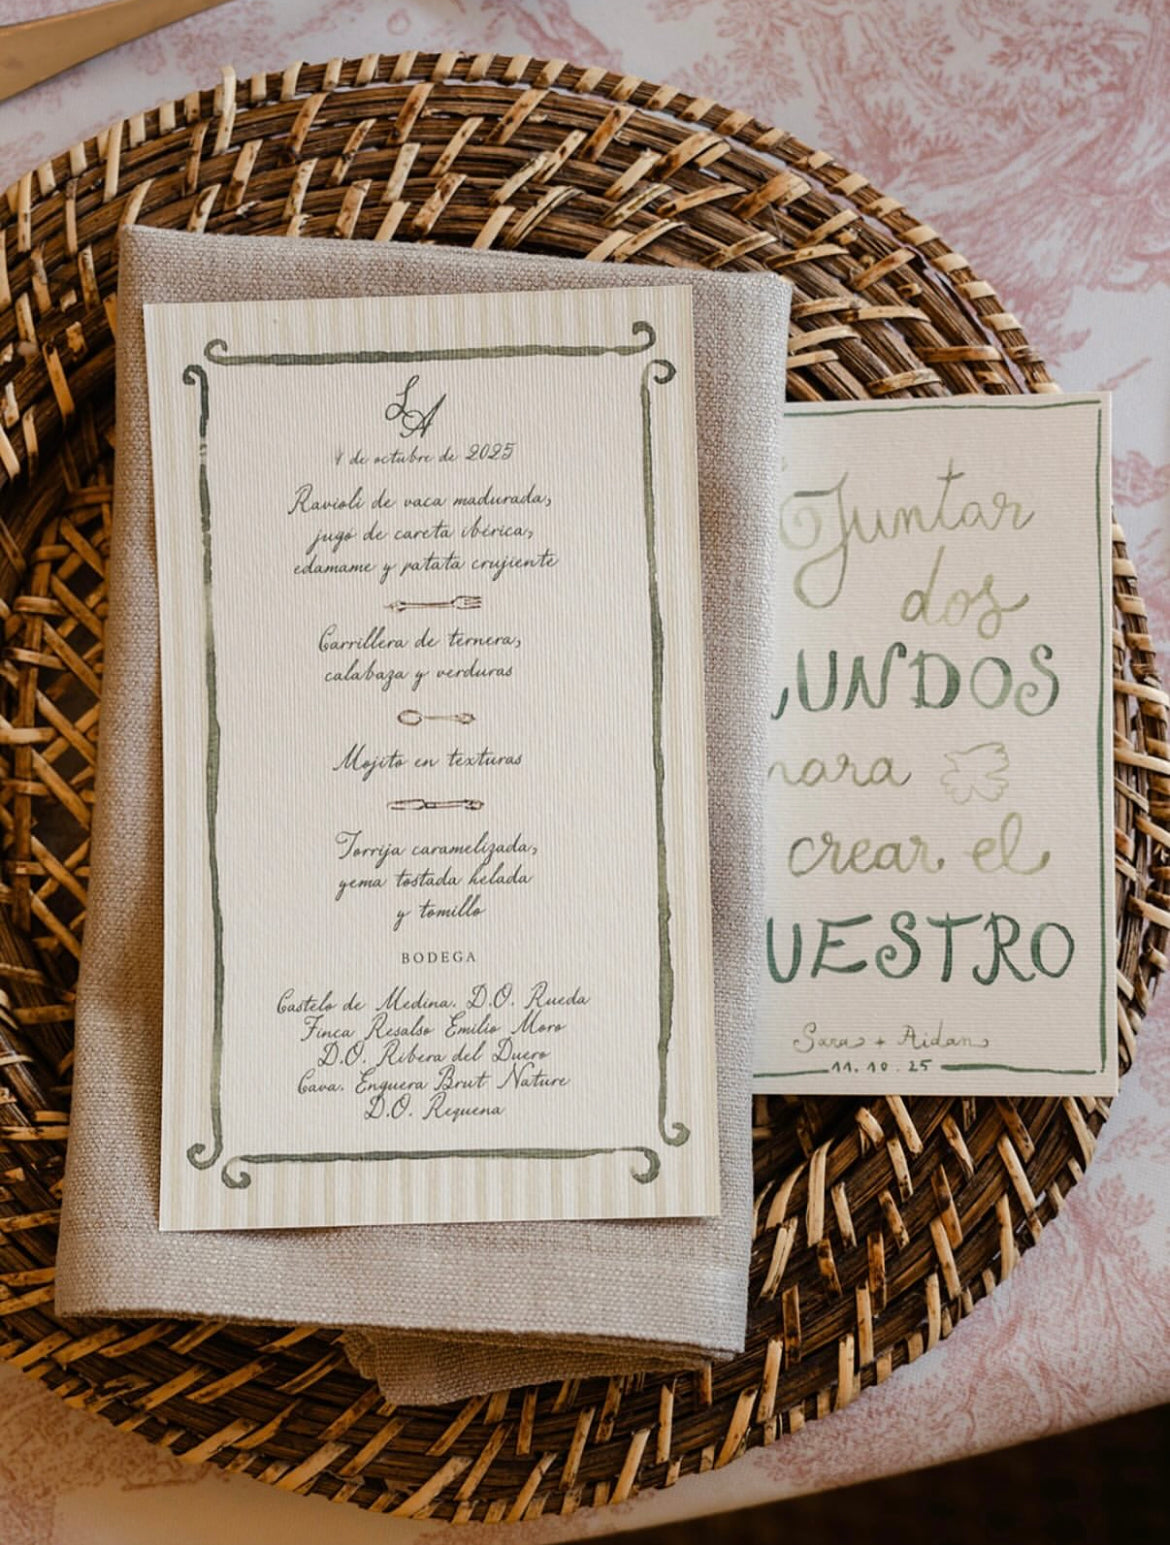 LA
4 de octubre de 2025
Ravioli de vaca madurada,
jugo de careta ibérica,
edamame y patata crujiente
Carrillera de ternera,
calabaza y verduras
Mojito en texturas
Torrija caramelizada,
yema tostada helada
y tomillo
BODEGA
Castelo de Medina. D.O. Rueda
Finca Resalso Emilio Moro
D.O. Ribera del Duero
Cava. Enguera Brut Nature
D.O. Requena
Juntar
dos
UNDOS
para
crear el
UESTRO
Sara + Aidan
11.10.25